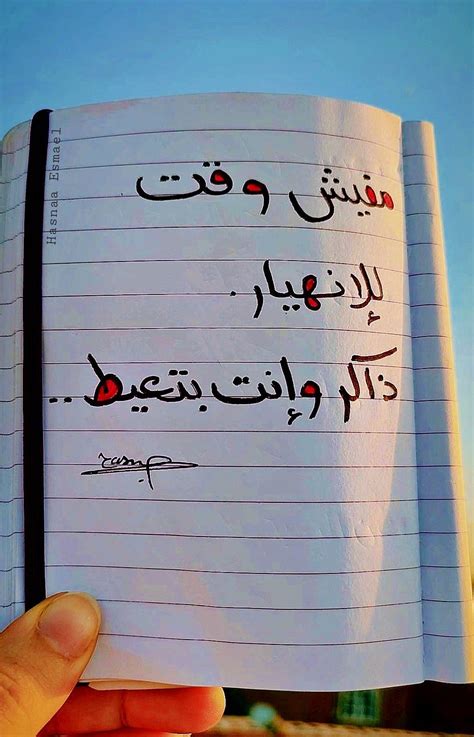 مفيش وقت
للإنهيار.
ذاكر وإنت بتعيط..
Hasnaa Esmael